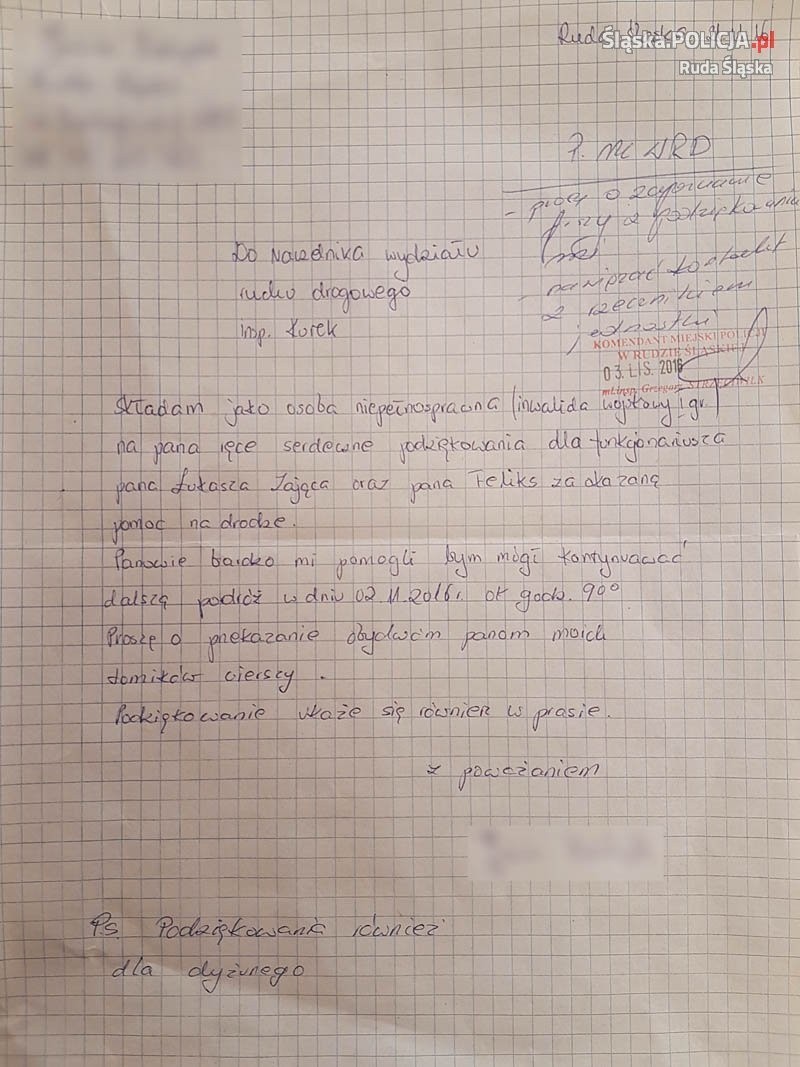 Ruda
Śląska.POLICJA.pl
Ruda Śląska
P. NRD
- proszę o zapoznanie
z podziękowania
mi
- nawiązać kontakt
z rzecznikiem
jednostki
Do Naczelnika wydziału
ruchu drogowego
insp. Kurek
KOMENDANT MIEJSKI POLICJI
W RUDZIE ŚLĄSKIEJ
03. LIS. 2016
mł.insp. Grzegorz
Składam jako osoba niepełnosprawna (inwalida wojskowy I gr.)
na pana ręce serdeczne podziękowania dla funkcjonariusza
pana Łukasza Zająca oraz pana Feliks za okazaną
pomoc na drodze.
Panowie bardzo mi pomogli bym mógł kontynuować
dalszą podróż w dniu 02.11.2016r. ok godz. 9⁰⁰
Proszę o przekazanie obydwóm panom moich
wierszy .
Podziękowanie ukaże się również w prasie.
z poważaniem
Ps. Podziękowania również
dla dyżurnego